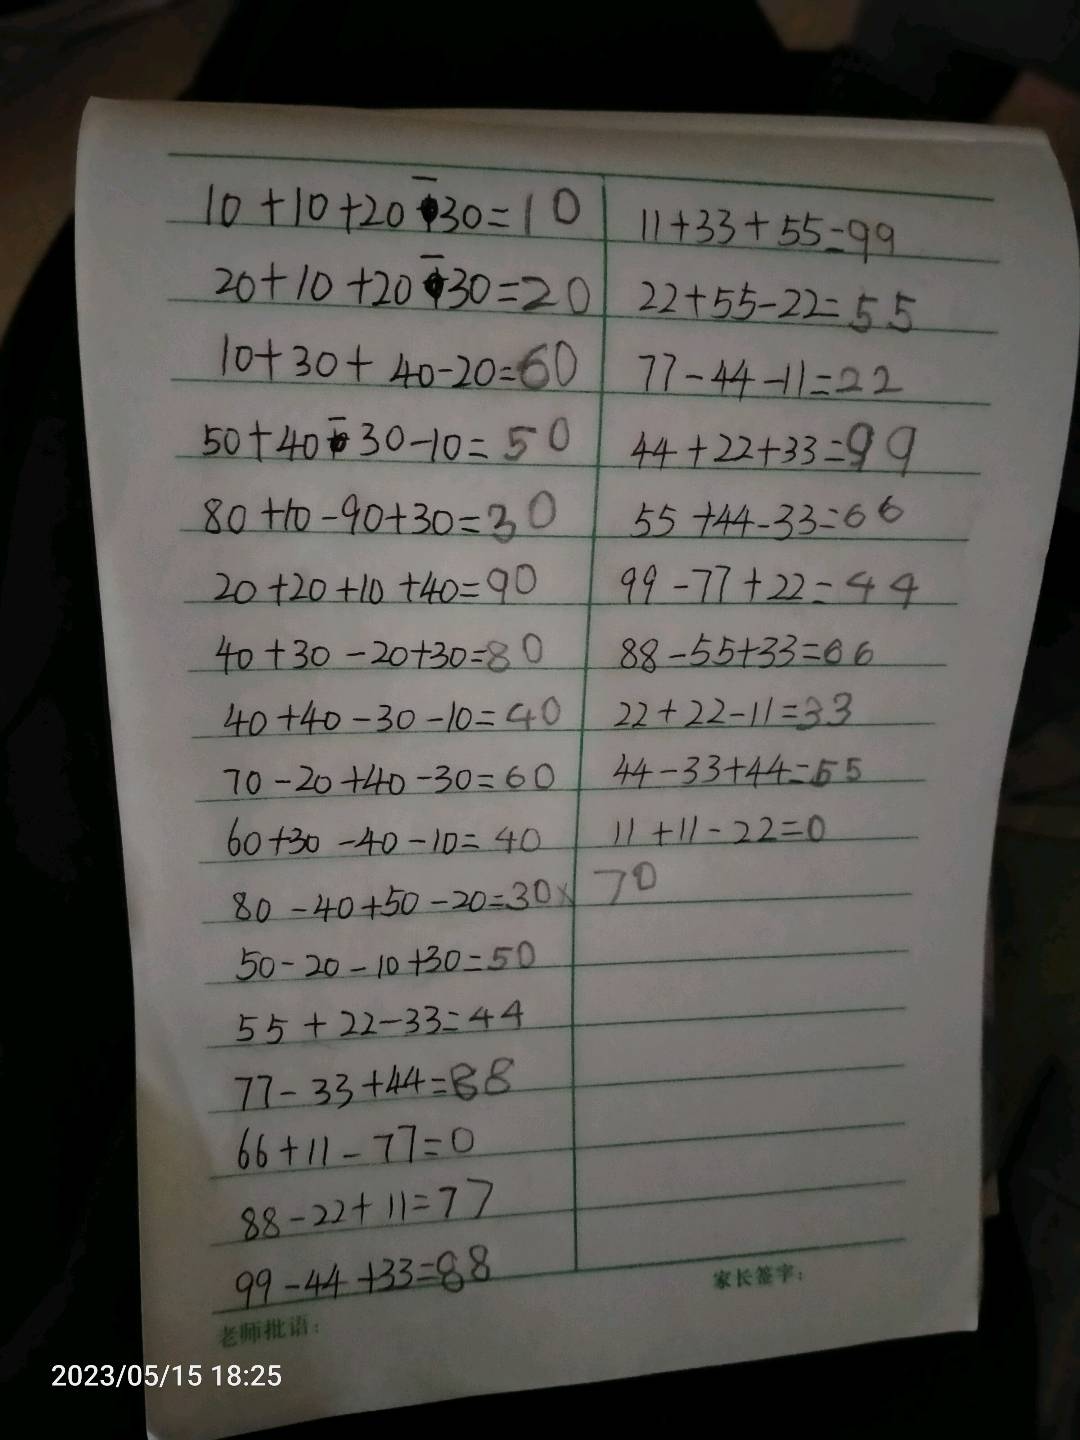 10+10+20-30=10
20+10+20-30=20
10+30+40-20=60
50+40-30-10=50
80+10-90+30=30
20+20+10+40=90
40+30-20+30=80
40+40-30-10=40
70-20+40-30=60
60+30-40-10=40
80-40+50-20=30x 70
50-20-10+30=50
55+22-33=44
77-33+44=88
66+11-77=0
88-22+11=77
99-44+33=88
老师批语:
11+33+55=99
22+55-22=55
77-44-11=22
44+22+33=99
55+44-33=66
99-77+22=44
88-55+33=66
22+22-11=33
44-33+44=55
11+11-22=0
家长签字:
2023/05/15 18:25